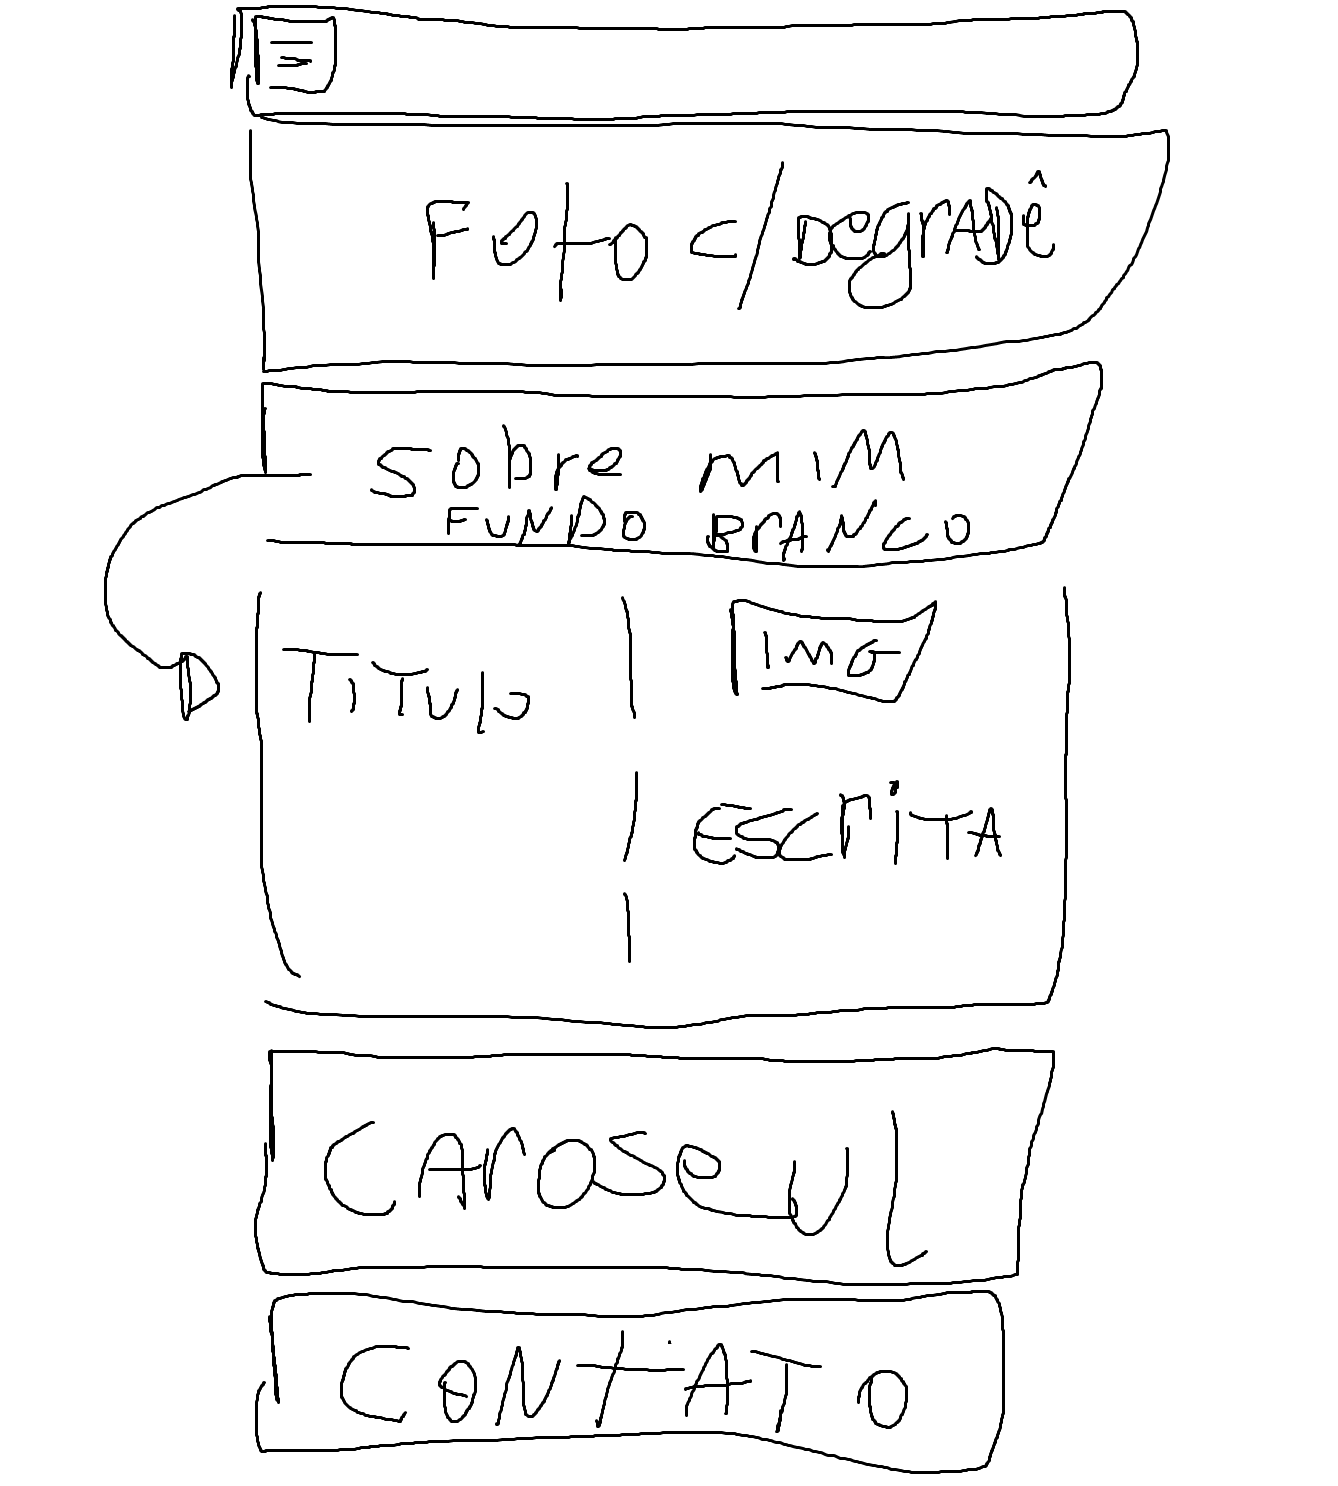 Foto c/ DegrADê
Sobre MiM
FUNDO BrANCO
TiTulo
IMG
ESCriTA
CAroseUl
CONtATO